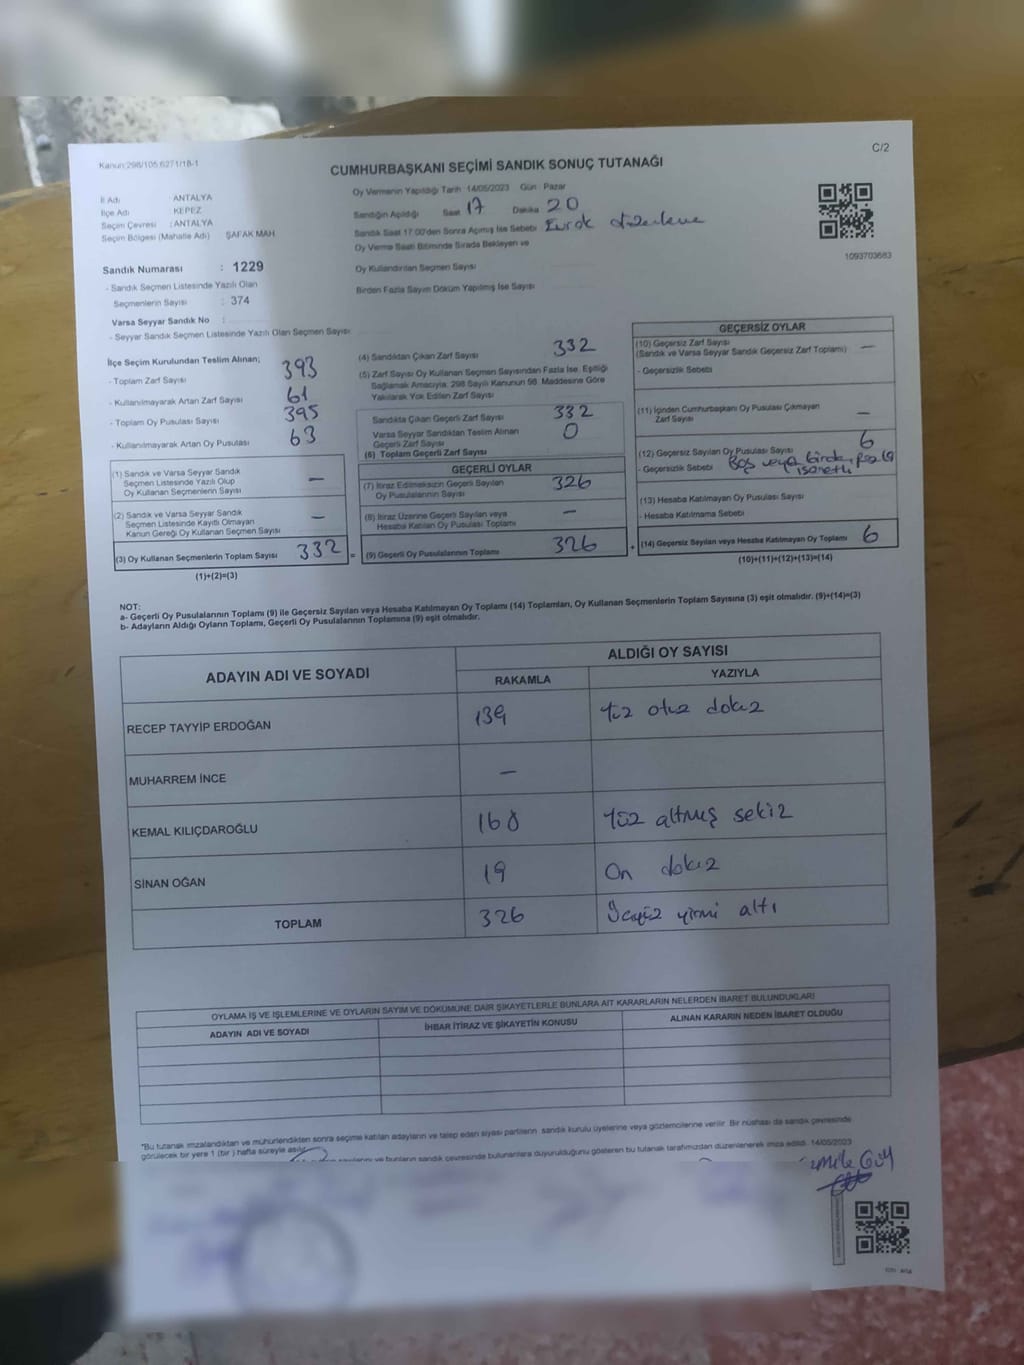 Kanun:298/105 6271/18-1
C/2
CUMHURBAŞKANI SEÇİMİ SANDIK SONUÇ TUTANAĞI
İl Adı : ANTALYA
İlçe Adı : KEPEZ
Seçim Çevresi : ANTALYA
Seçim Bölgesi (Mahalle Adı) ŞAFAK MAH.
Sandık Numarası : 1229
- Sandık Seçmen Listesinde Yazılı Olan
Seçmenlerin Sayısı : 374
Varsa Seyyar Sandık No :
- Seyyar Sandık Seçmen Listesinde Yazılı Olan Seçmen Sayısı
Oy Vermenin Yapıldığı Tarih 14/05/2023 Gün : Pazar
Sandığın Açıldığı Saat 17 Dakika 20
Sandık Saat 17:00'den Sonra Açılmış İse Sebebi Evrak düzenleme
Oy Verme Saati Bitiminde Sırada Bekleyen ve
Oy Kullandırılan Seçmen Sayısı
Birden Fazla Sayım Döküm Yapılmış İse Sayısı
1093703683
İlçe Seçim Kurulundan Teslim Alınan;
- Toplam Zarf Sayısı 393
- Kullanılmayarak Artan Zarf Sayısı 61
- Toplam Oy Pusulası Sayısı 395
- Kullanılmayarak Artan Oy Pusulası 63
(1) Sandık ve Varsa Seyyar Sandık
Seçmen Listesinde Yazılı Olup
Oy Kullanan Seçmenlerin Sayısı —
(2) Sandık ve Varsa Seyyar Sandık
Seçmen Listesinde Kayıtlı Olmayan
Kanun Gereği Oy Kullanan Seçmen Sayısı —
(3) Oy Kullanan Seçmenlerin Toplam Sayısı 332 =
(1)+(2)=(3)
(4) Sandıktan Çıkan Zarf Sayısı 332
(5) Zarf Sayısı Oy Kullanan Seçmen Sayısından Fazla İse, Eşitliği
Sağlamak Amacıyla; 298 Sayılı Kanunun 98. Maddesine Göre
Yakılarak Yok Edilen Zarf Sayısı
Sandıkta Çıkan Geçerli Zarf Sayısı 332
Varsa Seyyar Sandıktan Teslim Alınan
Geçerli Zarf Sayısı 0
(6) Toplam Geçerli Zarf Sayısı
GEÇERLİ OYLAR
(7) İtiraz Edilmeksizin Geçerli Sayılan
Oy Pusulalarının Sayısı 326
(8) İtiraz Üzerine Geçerli Sayılan veya
Hesaba Katılan Oy Pusulası Toplamı —
(9) Geçerli Oy Pusulalarının Toplamı 326 +
GEÇERSİZ OYLAR
(10) Geçersiz Zarf Sayısı
(Sandık ve Varsa Seyyar Sandık Geçersiz Zarf Toplamı) —
- Geçersizlik Sebebi
(11) İçinden Cumhurbaşkanı Oy Pusulası Çıkmayan
Zarf Sayısı —
(12) Geçersiz Sayılan Oy Pusulası Sayısı 6
- Geçersizlik Sebebi Boş veya birden fazla
işaretli
(13) Hesaba Katılmayan Oy Pusulası Sayısı
- Hesaba Katılmama Sebebi
(14) Geçersiz Sayılan veya Hesaba Katılmayan Oy Toplamı 6
(10)+(11)+(12)+(13)=(14)
NOT:
a- Geçerli Oy Pusulalarının Toplamı (9) ile Geçersiz Sayılan veya Hesaba Katılmayan Oy Toplamı (14) Toplamları, Oy Kullanan Seçmenlerin Toplam Sayısına (3) eşit olmalıdır. (9)+(14)=(3)
b- Adayların Aldığı Oyların Toplamı, Geçerli Oy Pusulalarının Toplamına (9) eşit olmalıdır.
ADAYIN ADI VE SOYADI ALDIĞI OY SAYISI
RAKAMLA YAZIYLA
RECEP TAYYİP ERDOĞAN 139 Yüz otuz dokuz
MUHARREM İNCE —
KEMAL KILIÇDAROĞLU 168 Yüz altmış sekiz
SİNAN OĞAN 19 On dokuz
TOPLAM 326 Üçyüz yirmi altı
OYLAMA İŞ VE İŞLEMLERİNE VE OYLARIN SAYIM VE DÖKÜMÜNE DAİR ŞİKAYETLERLE BUNLARA AİT KARARLARIN NELERDEN İBARET BULUNDUKLARI
ADAYIN ADI VE SOYADI İHBAR İTİRAZ VE ŞİKAYETİN KONUSU ALINAN KARARIN NEDEN İBARET OLDUĞU
*Bu tutanak imzalandıktan ve mühürlendikten sonra seçime katılan adayların ve talep eden siyasi partilerin sandık kurulu üyelerine veya gözlemcilerine verilir. Bir nüshası da sandık çevresinde
görülecek bir yere 1 (bir ) hafta süreyle asılır.
sayılarını ve bunların sandık çevresinde bulunanlara duyurulduğunu gösteren bu tutanak tarafımızdan düzenlenerek imza edildi. 14/05/2023